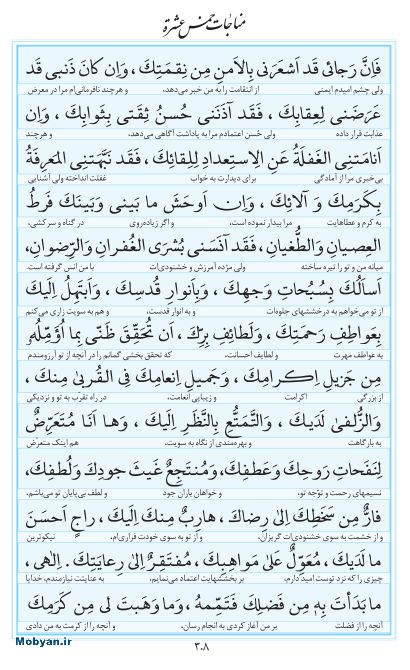 مناجات خمس عشرة
فَاِنَّ رَجائی قَد اَشعَرَنی بِالاَمنِ مِن نِقمَتِكَ ، وَاِن كانَ ذَنبی قَد
ولی چشم امیدم ایمنی از انتقامت را به من خبر می‌دهد، و هر چند نافرمانی‌ام مرا در معرض
عَرَّضَنی لِعِقابِكَ ، فَقَد آذَنَنی حُسنُ ثِقَتی بِثَوابِكَ ، وَاِن
عذابت قرار داده ولی حُسن اعتمادم مرا به پاداشت آگاهی می‌دهد، و هرچند
اَنامَتنِی الغَفلَةُ عَنِ الاِستِعدادِ لِلِقائِكَ ، فَقَد نَبَّهَتنِی المَعرِفَةُ
بی‌خبری مرا از آمادگی برای دیدارت به خواب غفلت انداخته ولی آشنایی
بِكَرَمِكَ وَ آلائِكَ ، وَاِن اَوحَشَ ما بَینی وَبَینَكَ فَرطُ
به کرم و عطاهایت مرا بیدار نموده است، و اگر زیاده‌روی در گناه و سرکشی،
العِصیانِ وَالطُّغیانِ، فَقَد آنَسَنی بُشرَی الغُفرانِ وَالرِّضوانِ،
میانه من و تو را تیره ساخته ولی مژده آمرزش و خشنودی‌ات با من انس گرفته است.
اَسأَلُكَ بِسُبُحاتِ وَجهِكَ ، وَبِاَنوارِ قُدسِكَ ، وَاَبتَهِلُ اِلَیكَ
از تو می‌خواهم به درخششهای جلوه‌ات و به انوار قدست، و هم به سویت زاری می‌کنم
بِعَواطِفِ رَحمَتِكَ ، وَلَطائِفِ بِرِّكَ ، اَن تُحَقِّقَ ظَنّی بِما اُؤَمِّلُهُ
به عواطف مهرت و لطایف احسانت، که تحقق بخشی گمانم را در آنچه از تو آرزومندم
مِن جَزیلِ اِكرامِكَ ، وَجَمیلِ اِنعامِكَ فِی القُربی مِنكَ ،
از بزرگی اکرامت و زیبایی انعامت، در راه تقرب به تو و نزدیکی
وَالزُّلفی لَدَیكَ ، وَالتَّمَتُّعِ بِالنَّظَرِ اِلَیكَ ، وَها اَنا مُتَعَرِّضٌ
به بارگاهت و بهره‌مندی از نگاه به سویت، هم اینک متعرّض
لِنَفَحاتِ رَوحِكَ وَعَطفِكَ، وَمُنتَجِعٌ غَیثَ جودِكَ وَلُطفِكَ،
نسیمهای رحمت و توّجه تو، و خواهان باران جود و لطف بی‌پایان تو می‌باشم.
فارٌّ مِن سَخَطِكَ اِلی رِضاكَ ، هارِبٌ مِنكَ اِلَیكَ ، راجٍ اَحسَنَ
و از خشمت به سوی خشنودی‌ات گریزان، و از تو به سوی خودت فراری‌ام. نیکوترین
ما لَدَیكَ ، مُعَوِّلٌ عَلی مَواهِبِكَ ، مُفتَقِرٌ اِلی رِعایَتِكَ . اِلهی ،
چیزی را که نزد توست امید دارم، بر بخششهایت اعتماد می‌نمایم، به عنایتت نیازمندم، خدایا
ما بَدَأتَ بِهِ مِن فَضلِكَ فَتَمِّمهُ ، وَما وَهَبتَ لی مِن كَرَمِكَ
آنچه را از فضلت بر من آغاز کردی به انجام رسان، و آنچه را از کرمت به من دادی
۳۰۸
Mobyan.ir